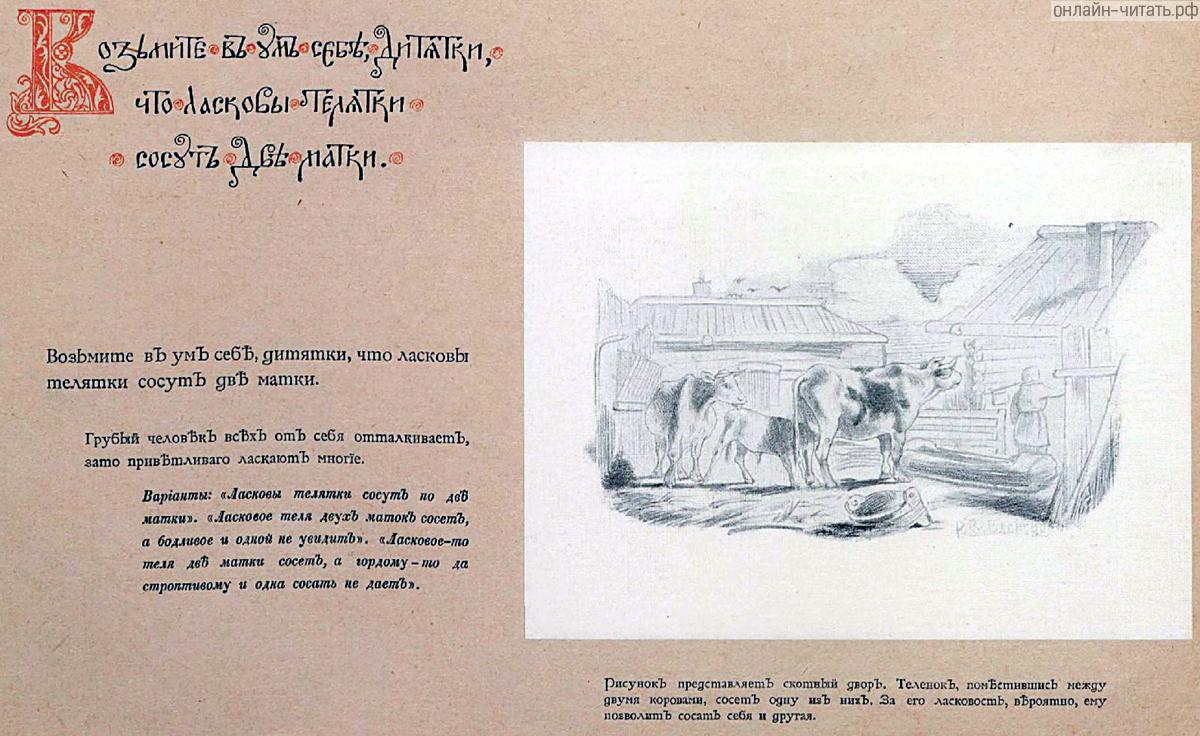 онлайн-читать.рф
Возьмите въ умъ себѣ, дитятки,
что ласковы телятки
сосутъ двѣ матки.
Возьмите въ умъ себѣ, дитятки, что ласковы
телятки сосутъ двѣ матки.
Грубый человѣкъ всѣхъ отъ себя отталкиваетъ,
зато привѣтливаго ласкаютъ многіе.
Варіанты: «Ласковы телятки сосутъ по двѣ
матки». «Ласковое теля двухъ матокъ сосетъ,
а бодливое и одной не увидитъ». «Ласковое-то
теля двѣ матки сосетъ, а гордому-то да
строптивому и одна сосать не даетъ».
Рисунокъ представляетъ скотный дворъ. Теленокъ, помѣстившись между
двумя коровами, сосетъ одну изъ нихъ. За его ласковость, вѣроятно, ему
позволитъ сосать себя и другая.